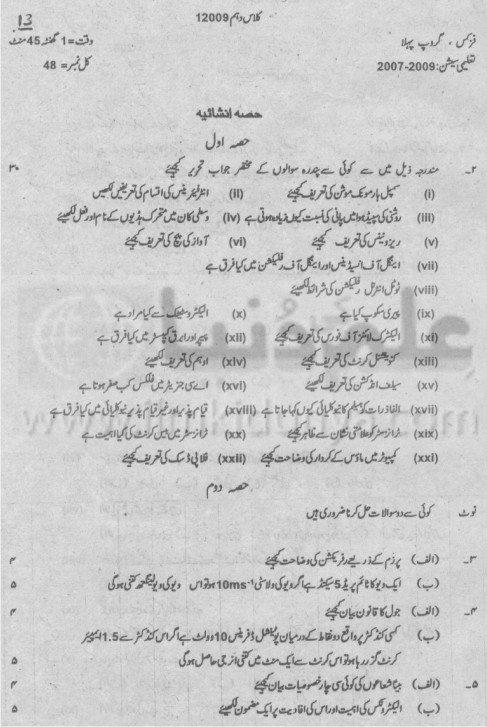 13
کلاس دہم 12009
فزکس، گروپ پہلا وقت = 1 گھنٹہ 45 منٹ
تعلیمی سیشن: 2007-2009 کل نمبر = 48
حصہ انشائیہ
حصہ اول
۲۔ مندرجہ ذیل میں سے کوئی سے پندرہ سوالوں کے مختصر جواب تحریر کیجئے ۳۰
(i) سمپل ہارمونک موشن کی تعریف کیجئے (ii) انٹرفیرینس کی اقسام کی تعریفیں لکھیں
(iii) روشنی کی سپیڈ ہوا میں پانی کی نسبت کیوں زیادہ ہوتی ہے (iv) وسطی کان میں متحرک ہڈیوں کے نام اور فعل لکھیئے
(v) ریزونینس کی تعریف کیجئے (vi) آواز کی پچ کی تعریف کیجئے
(vii) اینگل آف انسیڈینس اور اینگل آف رفلیکشن میں کیا فرق ہے
(viii) ٹوٹل انٹرنل رفلیکشن کی شرائط لکھیئے
(ix) پیری سکوپ کیا ہے (x) الیکٹروسٹیٹک سے کیا مراد ہے
(xi) الیکٹرک لائنز آف فورس کی تعریف کیجئے (xii) پیپر اور ابرق کپیسٹر میں کیا فرق ہے
(xiii) کنونشنل کرنٹ کی تعریف کیجئے (xiv) اوہم کی تعریف لکھیئے
(xv) سیلف انڈکشن کی تعریف لکھیئے (xvi) اے سی جنریٹر میں فلکس کب صفر ہوتا ہے
(xvii) الفا ذرات کو ہیلیم کا نیوکلیائی کیوں کہا جاتا ہے (xviii) قیام پذیر اور غیر قیام پذیر نیوکلیائی میں کیا فرق ہے
(xix) ٹرانزسٹر کو علامتی نشان سے ظاہر کیجئے (xx) ٹرانزسٹر میں بیس کرنٹ کی کیا اہمیت ہے
(xxi) کمپیوٹر میں ماؤس کے کردار کی وضاحت کیجئے (xxii) فلاپی ڈسک کی تعریف کیجئے
حصہ دوم
نوٹ کوئی سے دو سوالات حل کرنا ضروری ہیں
۳۔ (الف) پرزم کے ذریعے رفریکشن کی وضاحت کیجئے ۴
(ب) ایک ویو کا ٹائم پریڈ 5 سیکنڈ ہے اگر ویو کی ولاسٹی 10ms⁻¹ ہو تو اس ویو کی ویولینگتھ کتنی ہوگی ۵
۴۔ (الف) جول کا قانون بیان کیجئے ۴
(ب) کسی کنڈکٹر پر واقع دو نقاط کے درمیان پوٹینشل ڈفرینس 10 وولٹ ہے اگر اس کنڈکٹر سے 1.5 ایمپیئر
کرنٹ گزر رہا ہو تو اس کرنٹ سے ایک منٹ میں کتنی انرجی حاصل ہوگی ۵
۵۔ (الف) بیٹا شعاعوں کی کوئی سی چار خصوصیات بیان کیجئے ۴
(ب) الیکٹرونکس کی اہمیت اور اس کی افادیت پر ایک مضمون لکھیئے ۵